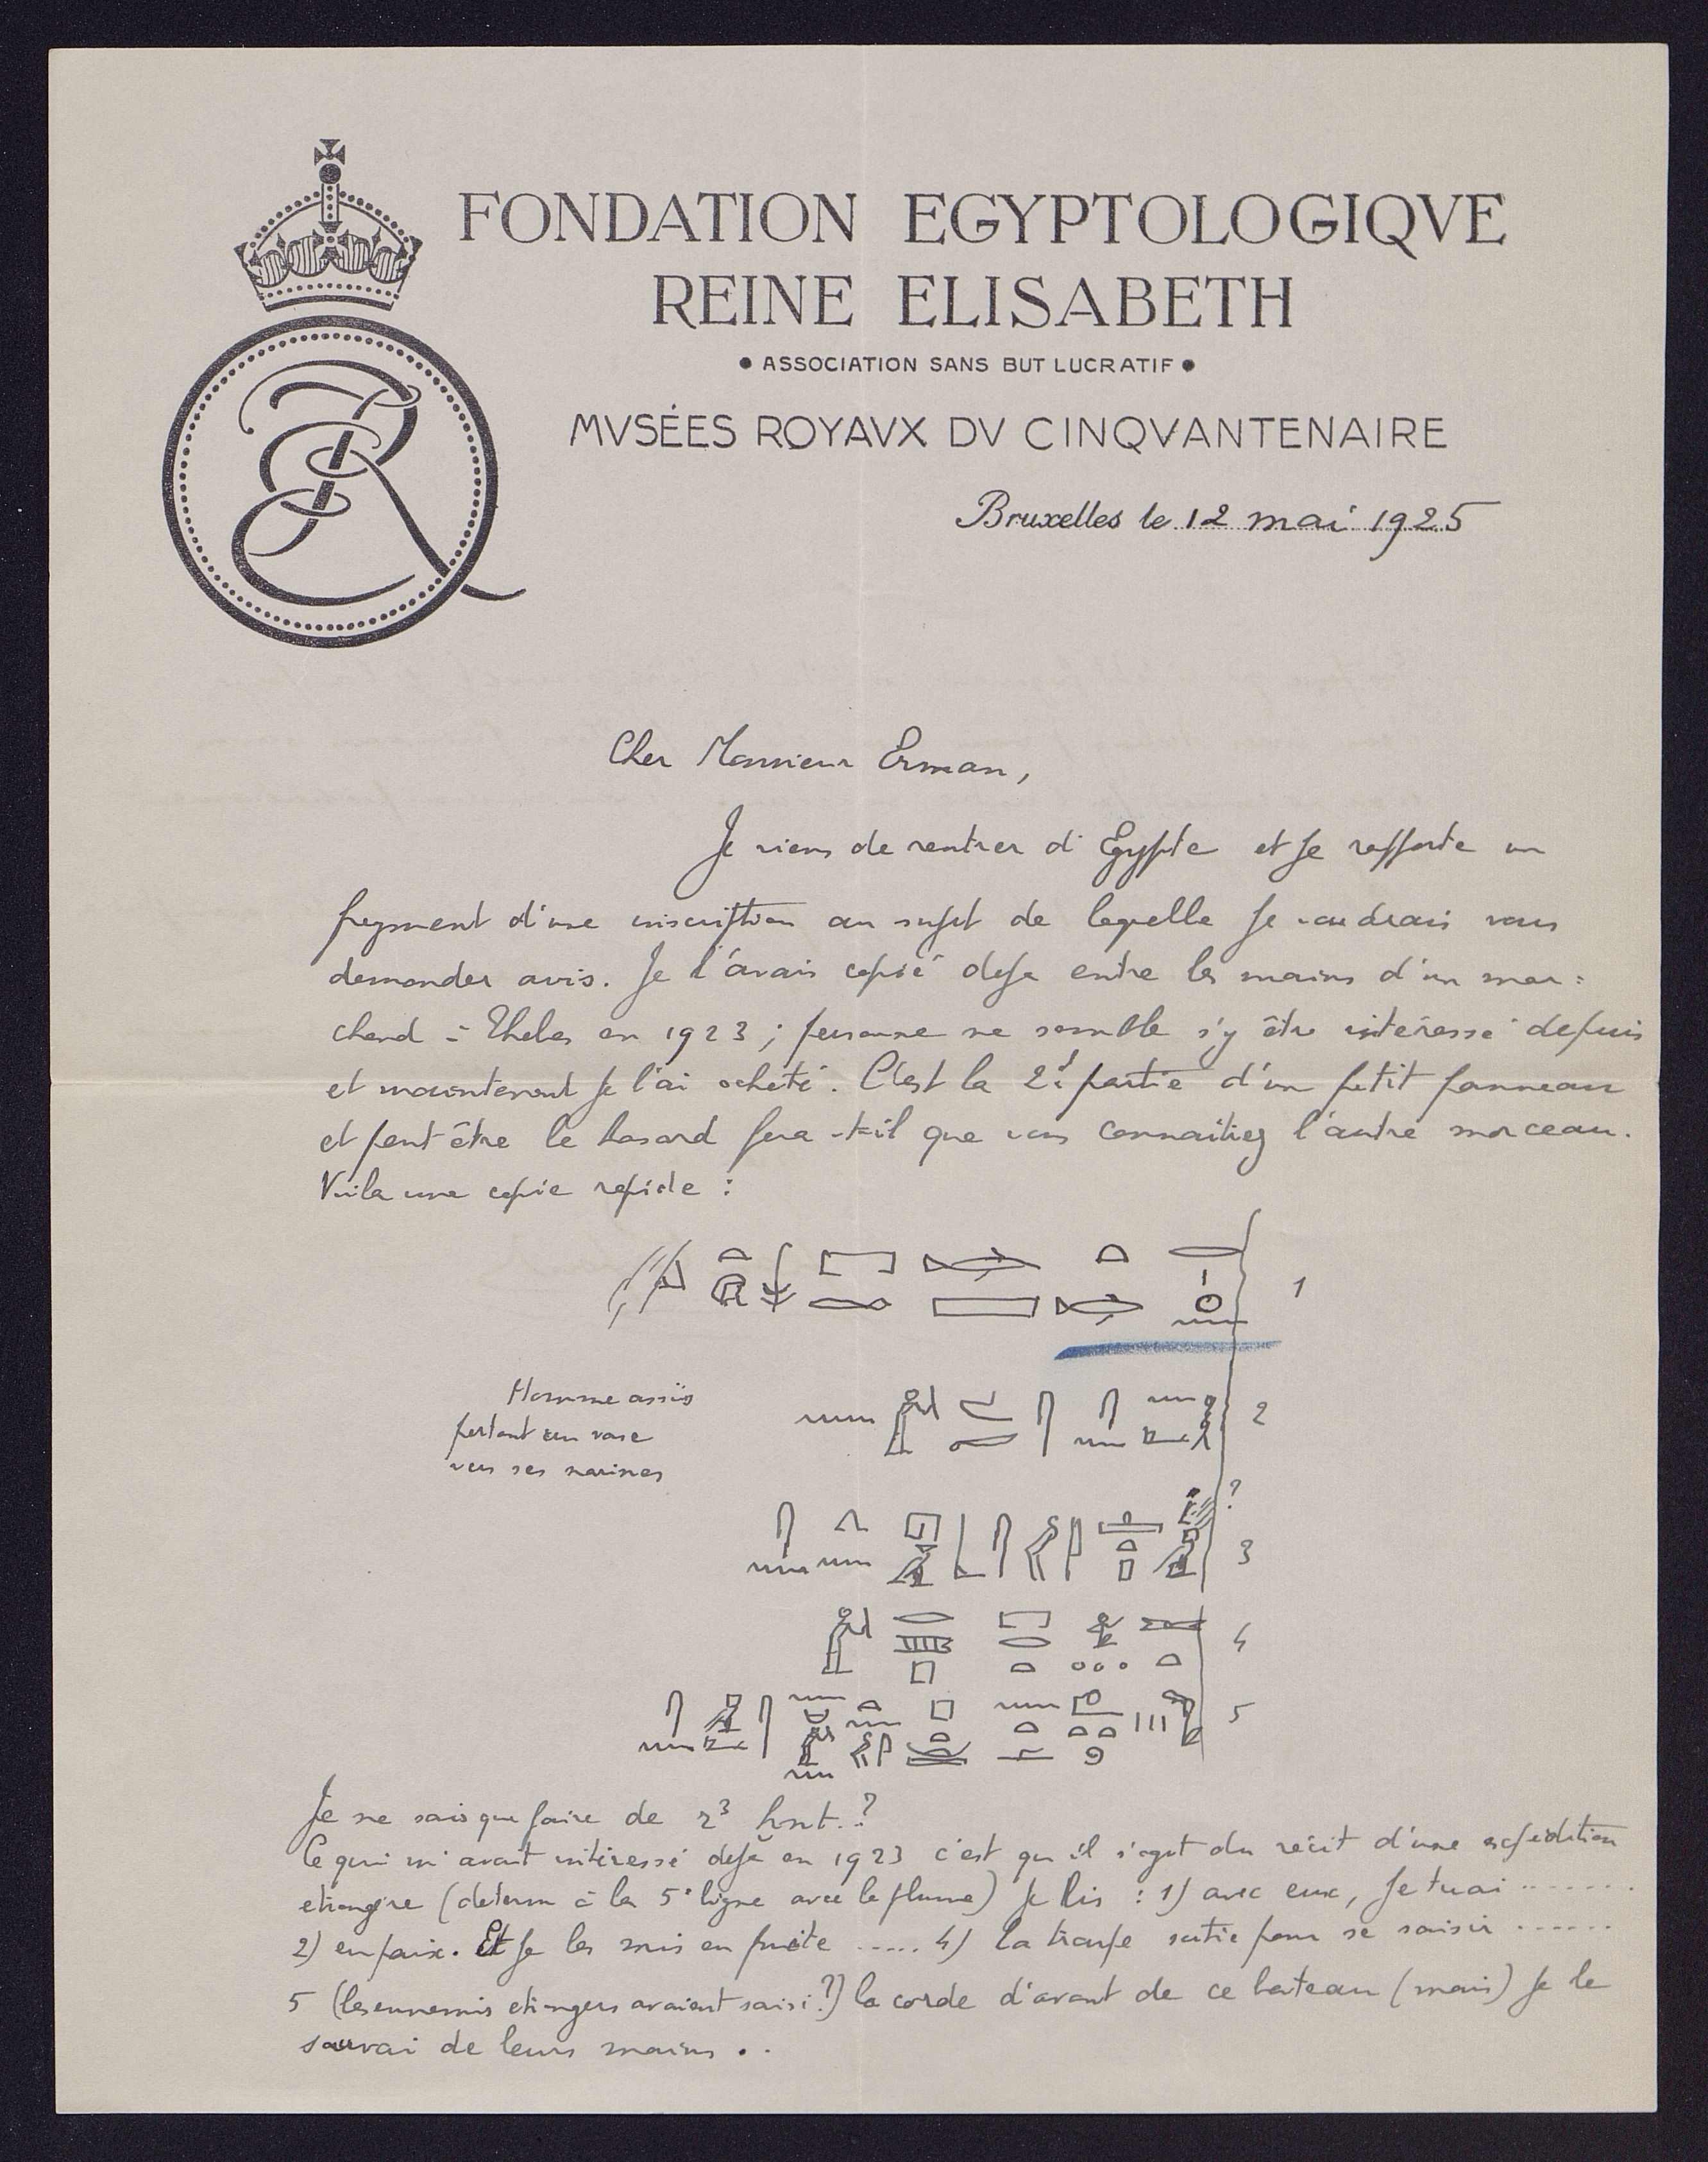 FONDATION EGYPTOLOGIQVE
REINE ELISABETH
• ASSOCIATION SANS BUT LUCRATIF •
MVSÉES ROYAVX DV CINQVANTENAIRE
Bruxelles le 12 mai 1925
Cher Monsieur Erman,
Je viens de rentrer d'Egypte et je rapporte un
fragment d'une inscription au sujet de laquelle je voudrais vous
demander avis. Je l'avais copié deja entre les mains d'un mar=
chand à Thebes en 1923 ; personne ne semble s'y être intéressé depuis
et maintenant je l'ai acheté. C'est la 2d partie d'un petit panneau
et peut être le hasard fera-t-il que vous connaitiez l'autre morceau.
Voila une copie rapide :
1
Homme assis
portant un vase
vers ses narines
2
?
3
4
5
Je ne sais que faire de r3 hnt.?
Ce qui m'avait intéressé deja en 1923 c'est qu'il s'agit du récit d'une expédition
etrangère (determ à la 5e ligne avec la plume) Je lis : 1) avec eux, je tuai .......
2) en paix. Et je les mis en fuite ..... 4) la troupe sortie pour se saisir ......
5 (les ennemis etrangers avaient saisi ?) la corde d'avant de ce bateau (mais) je le
sauvai de leurs mains ..